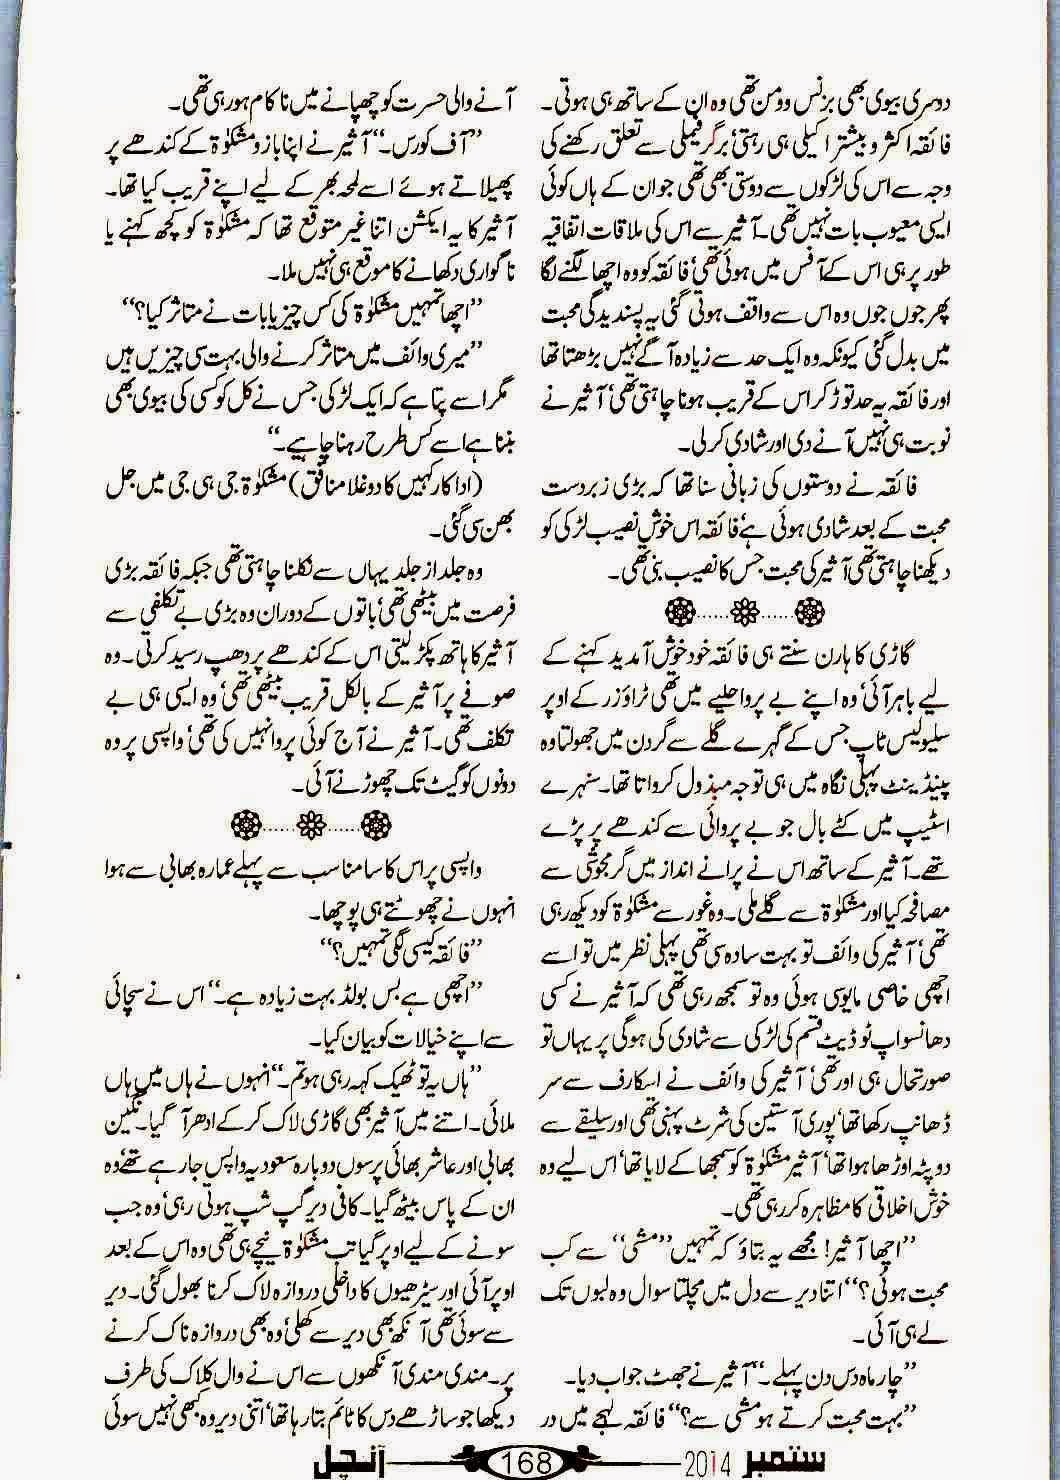 دوسری بیوی بھی بزنس وومن تھی وہ ان کے ساتھ ہی ہوتی۔
فائقہ اکثر و بیشتر اکیلی ہی رہتی‘ برگر فیملی سے تعلق رکھنے کی
وجہ سے اس کی لڑکوں سے دوستی بھی تھی جو ان کے ہاں کوئی
ایسی معیوب بات نہیں تھی۔ آثیر سے اس کی ملاقات اتفاقیہ
طور پر ہی اس کے آفس میں ہوئی تھی‘ فائقہ کو وہ اچھا لگنے لگا
پھر جوں جوں وہ اس سے واقف ہوتی گئی یہ پسندیدگی محبت
میں بدل گئی کیونکہ وہ ایک حد سے زیادہ آگے نہیں بڑھتا تھا
اور فائقہ یہ حد توڑ کر اس کے قریب ہونا چاہتی تھی‘ آثیر نے
نوبت ہی نہیں آنے دی اور شادی کرلی۔
فائقہ نے دوستوں کی زبانی سنا تھا کہ بڑی زبردست
محبت کے بعد شادی ہوئی ہے‘ فائقہ اس خوش نصیب لڑکی کو
دیکھنا چاہتی تھی آثیر کی محبت جس کا نصیب بنی تھی۔
گاڑی کا ہارن سنتے ہی فائقہ خود خوش آمدید کہنے کے
لیے باہر آئی‘ وہ اپنے بے پروا حلیے میں تھی ٹراؤزر کے اوپر
سلیولیس ٹاپ جس کے گہرے گلے سے گردن میں جھولتا وہ
پینڈینٹ پہلی نگاہ میں ہی توجہ مبذول کرواتا تھا۔ سنہرے
اسٹیپ میں کٹے بال جو بے پروائی سے کندھے پر پڑے
تھے۔ آثیر کے ساتھ اس نے پرانے انداز میں گرمجوشی سے
مصافحہ کیا اور مشکوٰۃ سے گلے ملی۔ وہ غور سے مشکوٰۃ کو دیکھ رہی
تھی‘ آثیر کی وائف تو بہت سادہ سی تھی پہلی نظر میں تو اسے
اچھی خاصی مایوسی ہوئی وہ تو سمجھ رہی تھی کہ آثیر نے کسی
دھانسو اپ ٹو ڈیٹ قسم کی لڑکی سے شادی کی ہوگی پر یہاں تو
صورتحال ہی اور تھی‘ آثیر کی وائف نے اسکارف سے سر
ڈھانپ رکھا تھا‘ پوری آستین کی شرٹ پہنی تھی اور سلیقے سے
دوپٹہ اوڑھا ہوا تھا‘ آثیر مشکوٰۃ کو سمجھا کے لایا تھا‘ اس لیے وہ
خوش اخلاقی کا مظاہرہ کررہی تھی۔
”اچھا آثیر! مجھے یہ بتاؤ کہ تمہیں ”مشی“ سے کب
محبت ہوئی؟“ اتنا دیر سے دل میں مچلتا سوال وہ لبوں تک
لے ہی آئی۔
”چار ماہ دس دن پہلے۔“ آثیر نے جھٹ جواب دیا۔
”بہت محبت کرتے ہو مشی سے؟“ فائقہ لہجے میں در
آنے والی حسرت کو چھپانے میں ناکام ہورہی تھی۔
”آف کورس۔“ آثیر نے اپنا بازو مشکوٰۃ کے کندھے پر
پھیلاتے ہوئے اسے لمحہ بھر کے لیے اپنے قریب کیا تھا۔
آثیر کا یہ ایکشن اتنا غیر متوقع تھا کہ مشکوٰۃ کو کچھ کہنے یا
ناگواری دکھانے کا موقع ہی نہیں ملا۔
”اچھا تمہیں مشکوٰۃ کی کس چیز یا بات نے متاثر کیا؟“
”میری وائف میں متاثر کرنے والی بہت سی چیزیں ہیں
مگر اسے پتا ہے کہ ایک لڑکی جس نے کل کو کسی کی بیوی بھی
بننا ہے اسے کس طرح رہنا چاہیے۔“
(اداکار کہیں کا دوغلا منافق) مشکوٰۃ جی ہی جی میں جل
بھن سی گئی۔
وہ جلد از جلد یہاں سے نکلنا چاہتی تھی جبکہ فائقہ بڑی
فرصت میں بیٹھی تھی‘ باتوں کے دوران وہ بڑی بے تکلفی سے
آثیر کا ہاتھ پکڑ لیتی اس کے کندھے پر دھپ رسید کرتی۔ وہ
صوفے پر آثیر کے بالکل قریب بیٹھی تھی‘ وہ ایسی ہی بے
تکلف تھی۔ آثیر نے آج کوئی پروا نہیں کی تھی‘ واپسی پر وہ
دونوں کو گیٹ تک چھوڑنے آئی۔
واپسی پر اس کا سامنا سب سے پہلے عمارہ بھابی سے ہوا
انہوں نے چھوٹتے ہی پوچھا۔
”فائقہ کیسی لگی تمہیں؟“
”اچھی ہے بس بولڈ بہت زیادہ ہے۔“ اس نے سچائی
سے اپنے خیالات کو بیان کیا۔
”ہاں یہ تو ٹھیک کہہ رہی ہو تم۔“ انہوں نے ہاں میں ہاں
ملائی۔ اتنے میں آثیر بھی گاڑی لاک کرکے ادھر آگیا۔ نگین
بھابی اور عاشر بھائی پرسوں دوبارہ سعودیہ واپس جارہے تھے‘ وہ
ان کے پاس بیٹھ گیا۔ کافی دیر گپ شپ ہوتی رہی‘ وہ جب
سونے کے لیے اوپر گیا تب مشکوٰۃ نیچے ہی تھی وہ اس کے بعد
اوپر آئی اور سیڑھیوں کا داخلی دروازہ لاک کرنا بھول گئی۔ دیر
سے سوئی تھی آنکھ بھی دیر سے کھلی‘ وہ بھی دروازہ ناک کرنے
پر۔ مندی مندی آنکھوں سے اس نے وال کلاک کی طرف
دیکھا جو ساڑھے دس کا ٹائم بتارہا تھا‘ اتنی دیر وہ کبھی نہیں سوئی
ستمبر 2014 168 آنچل